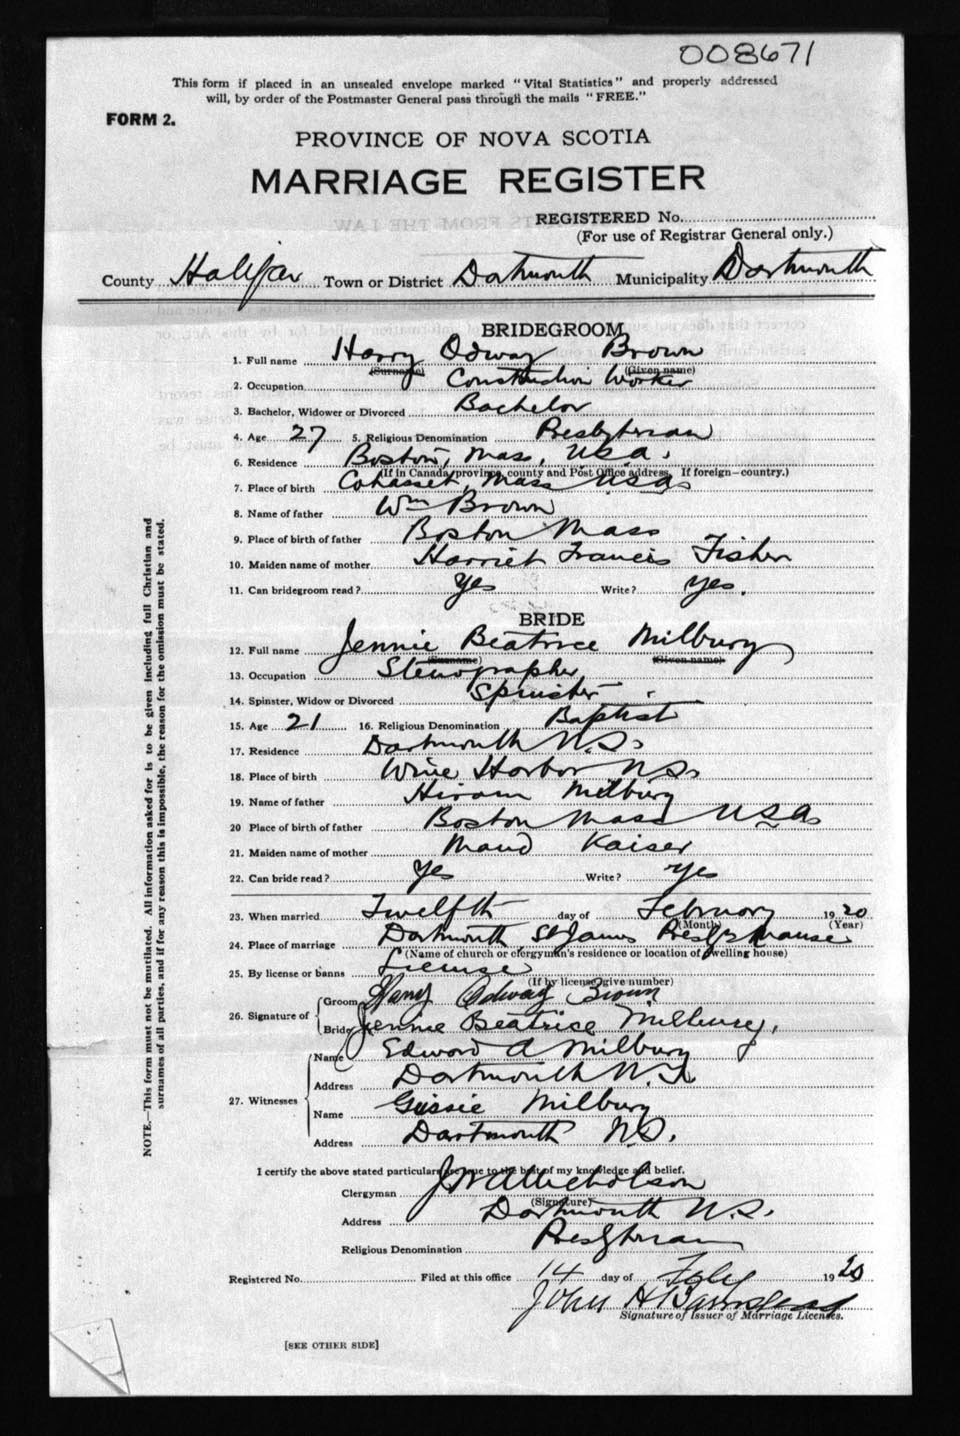 008671
This form if placed in an unsealed envelope marked "Vital Statistics" and properly addressed
will, by order of the Postmaster General pass through the mails "FREE."
FORM 2.
PROVINCE OF NOVA SCOTIA
MARRIAGE REGISTER
REGISTERED No.
(For use of Registrar General only.)
County Halifax Town or District Dartmouth Municipality Dartmouth
BRIDEGROOM
1. Full name Harry Odway Brown
(Surname) (Given name)
2. Occupation Construction Worker
3. Bachelor, Widower or Divorced Bachelor
4. Age 27 5. Religious Denomination Presbyterian
6. Residence Boston, Mass, U.S.A.
(If in Canada, province, county and Post Office address. If foreign—country.)
7. Place of birth Cohasset, Mass USA
8. Name of father Wm Brown
9. Place of birth of father Boston Mass
10. Maiden name of mother Harriet Francis Fisher
11. Can bridegroom read? Yes Write? Yes.
BRIDE
12. Full name Jennie Beatrice Milbury
(Surname) (Given name)
13. Occupation Stenographer
14. Spinster, Widow or Divorced Spinster
15. Age 21 16. Religious Denomination Baptist
17. Residence Dartmouth N.S.
18. Place of birth Wine Harbor N.S.
19. Name of father Hiram Milbury
20 Place of birth of father Boston Mass USA
21. Maiden name of mother Maud Kaiser
22. Can bride read? Yes Write? Yes
23. When married Twelfth day of February 1920
(Month) (Year)
24. Place of marriage Dartmouth, St James Presby manse
(Name of church or clergyman's residence or location of dwelling house)
25. By license or banns License
(If by license, give number)
26. Signature of Groom Harry Odway Brown
Bride Jennie Beatrice Milbury.
27. Witnesses
Name Edward A Milbury
Address Dartmouth N.S.
Name Gussie Milbury
Address Dartmouth N.S.
I certify the above stated particulars are true to the best of my knowledge and belief.
Clergyman Nicholson
(Signature)
Address Dartmouth N.S.
Religious Denomination Presbyterian
Registered No. Filed at this office 14 day of Feby 1920
John H
Signature of Issuer of Marriage Licenses.
[SEE OTHER SIDE]
NOTE.—This form must not be mutilated. All information asked for is to be given including full Christian and
surnames of all parties, and if for any reason this is impossible, the reason for the omission must be stated.